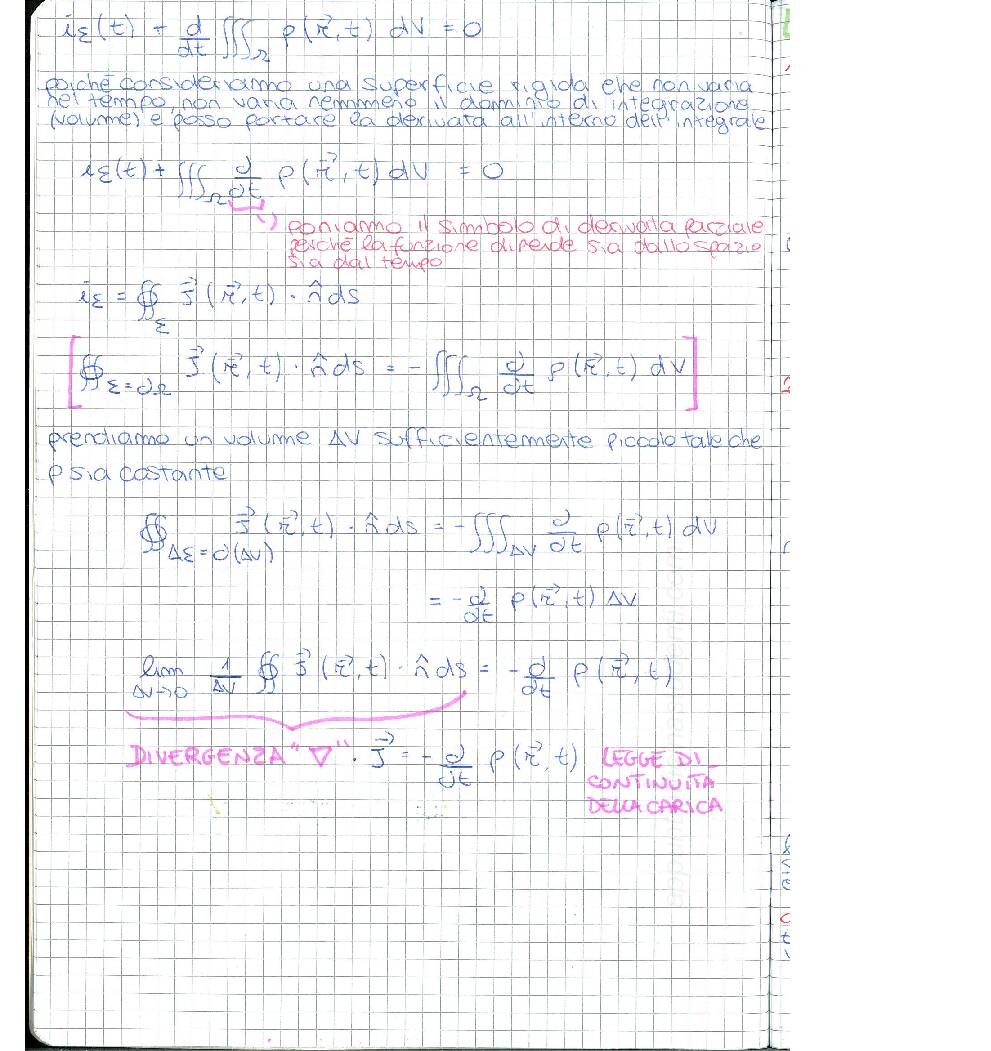 i_Σ(t) + d/dt ∭_Ω ρ(r⃗,t) dV = 0
poiché consideriamo una superficie rigida che non varia
nel tempo, non varia nemmeno il dominio di integrazione
(volume) e posso portare la derivata all'interno dell'integrale
i_Σ(t) + ∭_Ω ∂/∂t ρ(r⃗,t) dV = 0
poniamo il simbolo di derivata parziale
perché la funzione dipende sia dallo spazio
sia dal tempo
i_Σ = ∯_Σ J⃗(r⃗,t) · n̂ ds
[ ∯_Σ=∂Ω J⃗(r⃗,t) · n̂ ds = - ∭_Ω ∂/∂t ρ(r⃗,t) dV ]
prendiamo un volume ΔV sufficientemente piccolo tale che
ρ sia costante
∯_ΔΣ=∂(ΔV) J⃗(r⃗,t) · n̂ ds = - ∭_ΔV ∂/∂t ρ(r⃗,t) dV
= - ∂/∂t ρ(r⃗,t) ΔV
lim ΔV→0 1/ΔV ∯ J⃗(r⃗,t) · n̂ ds = - ∂/∂t ρ(r⃗,t)
DIVERGENZA "∇" · J⃗ = - ∂/∂t ρ(r⃗,t) LEGGE DI
CONTINUITÀ
DELLA CARICA